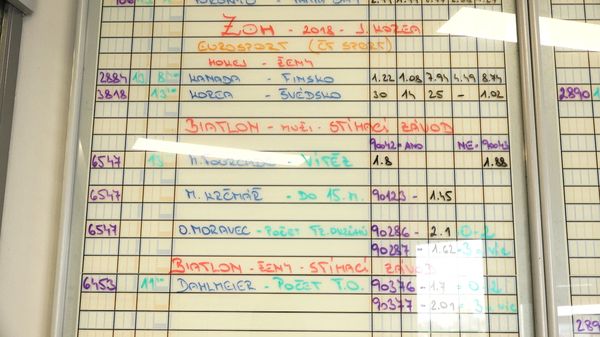 ZOH - 2018 - J. KOREA
EUROSPORT (ČT SPORT)
HOKEJ - ŽENY
2884 13 KANADA - FINSKO 1.22 1.08 7.94 4.49 8.74
3818 13 KOREA - ŠVÉDSKO 30 14 25 - 1.02
2890
BIATLON - MUŽI - STÍHACÍ ZÁVOD
ANO NE
6547 13 M. - VÍTĚZ 1.8 1.88
6547 M. KRČMÁŘ - DO 15. M. 90123 - 1.45
6547 O. MORAVEC - POČET 90286 - 2.1 = 0-2
90287 - 1.62 = 3 = víc
BIATLON - ŽENY - STÍHACÍ ZÁVOD
6453 DAHLMEIER - POČET T.O. 90376 - 1.7 = 0-2
90377 - 2.01 = 3 = víc